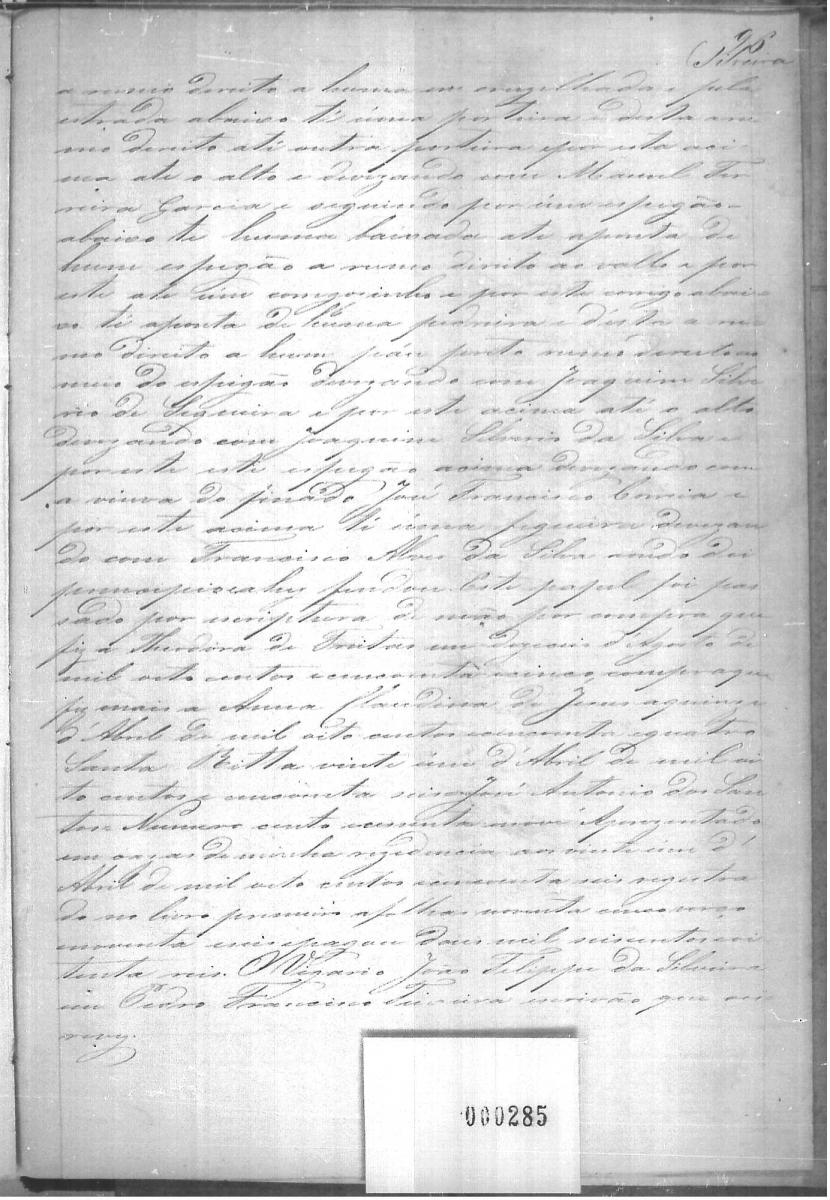 96
Silveira
a rumo direito a huma em cruzelhada e pela
estrada abaixo té úma porteira e desta a ru
mo direito até outra porteira e por esta aci
ma até o alto e devizando com Manoel Fer
reira Garcia e seguindo por úm espigão
abaixo té huma baixada até aponta de
hum espigão a rumo direito ao vallo e por
este até úm corregosinho e por este corrego abai
xo té aponta de húma pedreira e désta a ru
mo direito a hum páu preto rumo direito ao
meio do espigão devizando com Joaquim Silve
rio de Siqueira e por este acima até o alto
devizando com Joaquim Silverio da Silva e
por este este espigão acima devizando com
a viuva do finado José Francisco Correia e
por este acima té úma figueira devizan
do com Francisco Alves da Silva aonde dei
principio e alus findou. Este papel foi pas
sado por escriptura de mão por compra que
fiz a Theodora de Freitas em dezeceis d'Agosto de
mil oito centos e cincoenta e cinco, compra que
fiz mais a Anna Claudina de Jesus a quinze
d'Abril de mil oito centos e cincoenta e quatro
Santa Ritta vinte úm d'Abril de mil oi
to centos e cincoenta seis José Antonio dos San
tos Numero cento e cessenta e nove Aprezentado
em cazas de minha rezidencia aos vinte úm d'
Abril de mil oito centos e cincoenta seis registra
do no livro primeiro a folhas noventa cinco verço
noventa e seis e pagou dous mil seis centos e oi
tenta reis. O Vigario João Filippe da Silveira
eu Pedro Francisco Teixeira escrivão que es
crevy.
000285